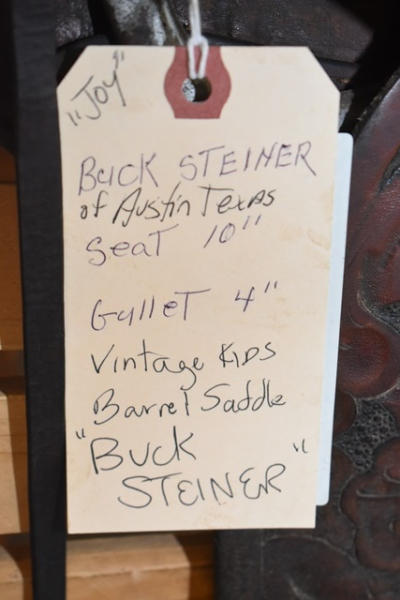 "Joy"
BUCK STEINER
of Austin Texas
Seat 10"
Gullet 4"
Vintage KIDS
Barrel Saddle
"BUCK
STEINER"